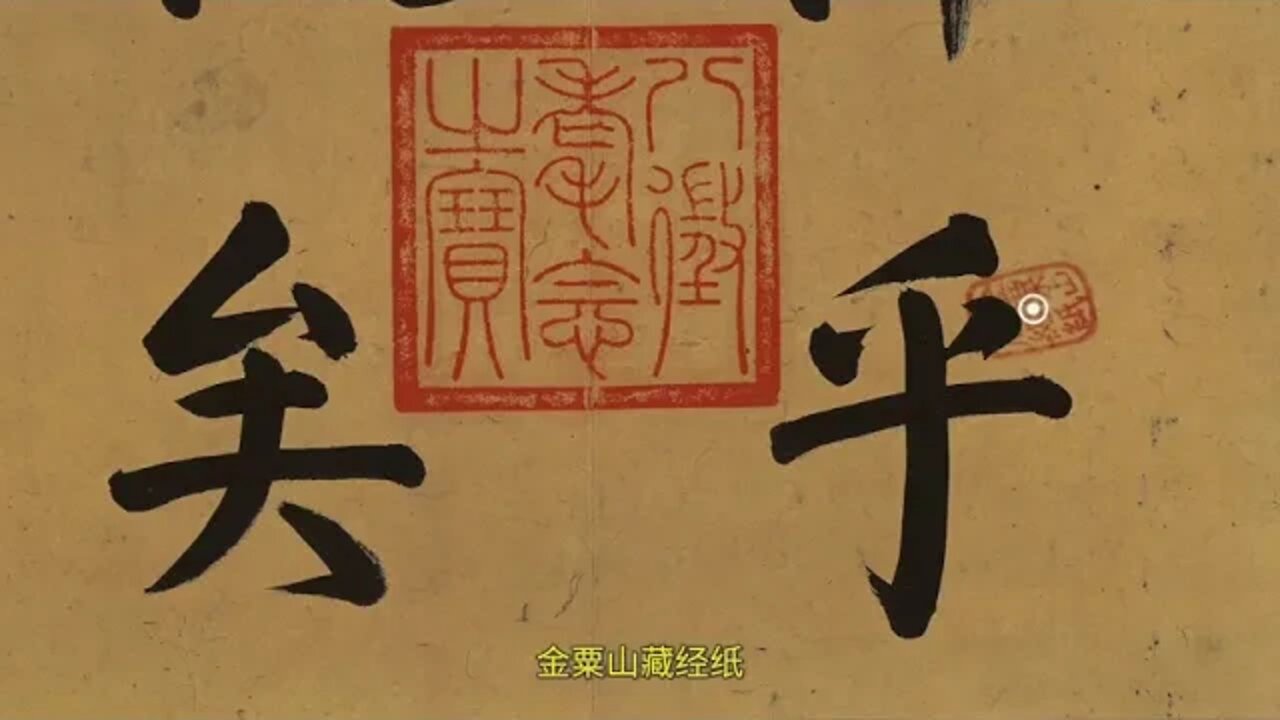 乎
八徵
耄念
之寶
矣
金粟山藏经纸